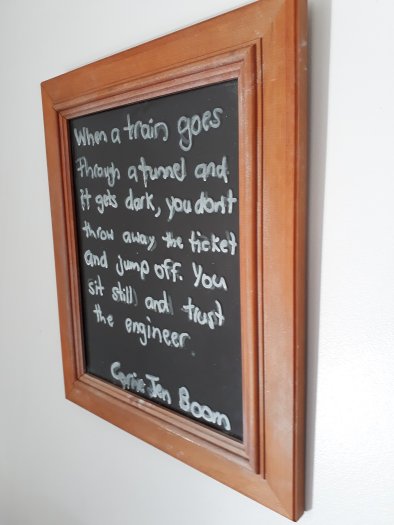 When a train goes
through a tunnel and
it gets dark, you don't
throw away the ticket
and jump off. You
sit still and trust
the engineer
Corrie Ten Boom